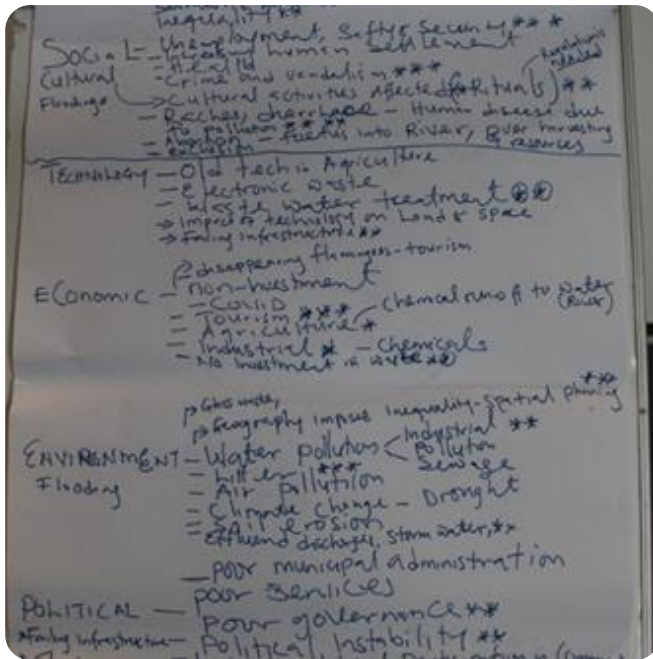 Inequality **
SOCIAL - Unemployment, Safty & Security **
Cultural - Informal human Settlement
- Health
Floodings - Crime and vandalism ***
→ Cultural activities Affected (Rituals) **
- Raches, diarrhoae - Human disease due
to pollution ** **
- Abortion - foetus into River, River harvesting
- Exclusion & resources
TECHNOLOGY - Old tech in Agriculture
- Electronic waste
- Waste water treatment **
→ Impact of technology on Land & space
→ Failing infrastructure **
disappearing flamingoes - tourism
ECONOMIC - non-investment
- COVID
- Tourism *** Chemical runoff to water
- Agriculture * (River)
- Industrial * - Chemicals
- No investment in waste **
Glass waste,
Geography impose Inequality - Spatial planning ***
ENVIRONMENT - Water Pollution Industrial **
Flooding Pollution
Sewage
- Litter ***
- Air Pollution
- Climate Change - Drought
- Soil erosion
- Effluend discharges, storm water, **
- poor municipal administration
POLITICAL - poor Services
Poor governance **
*Failing infrastructure - Political Instability **